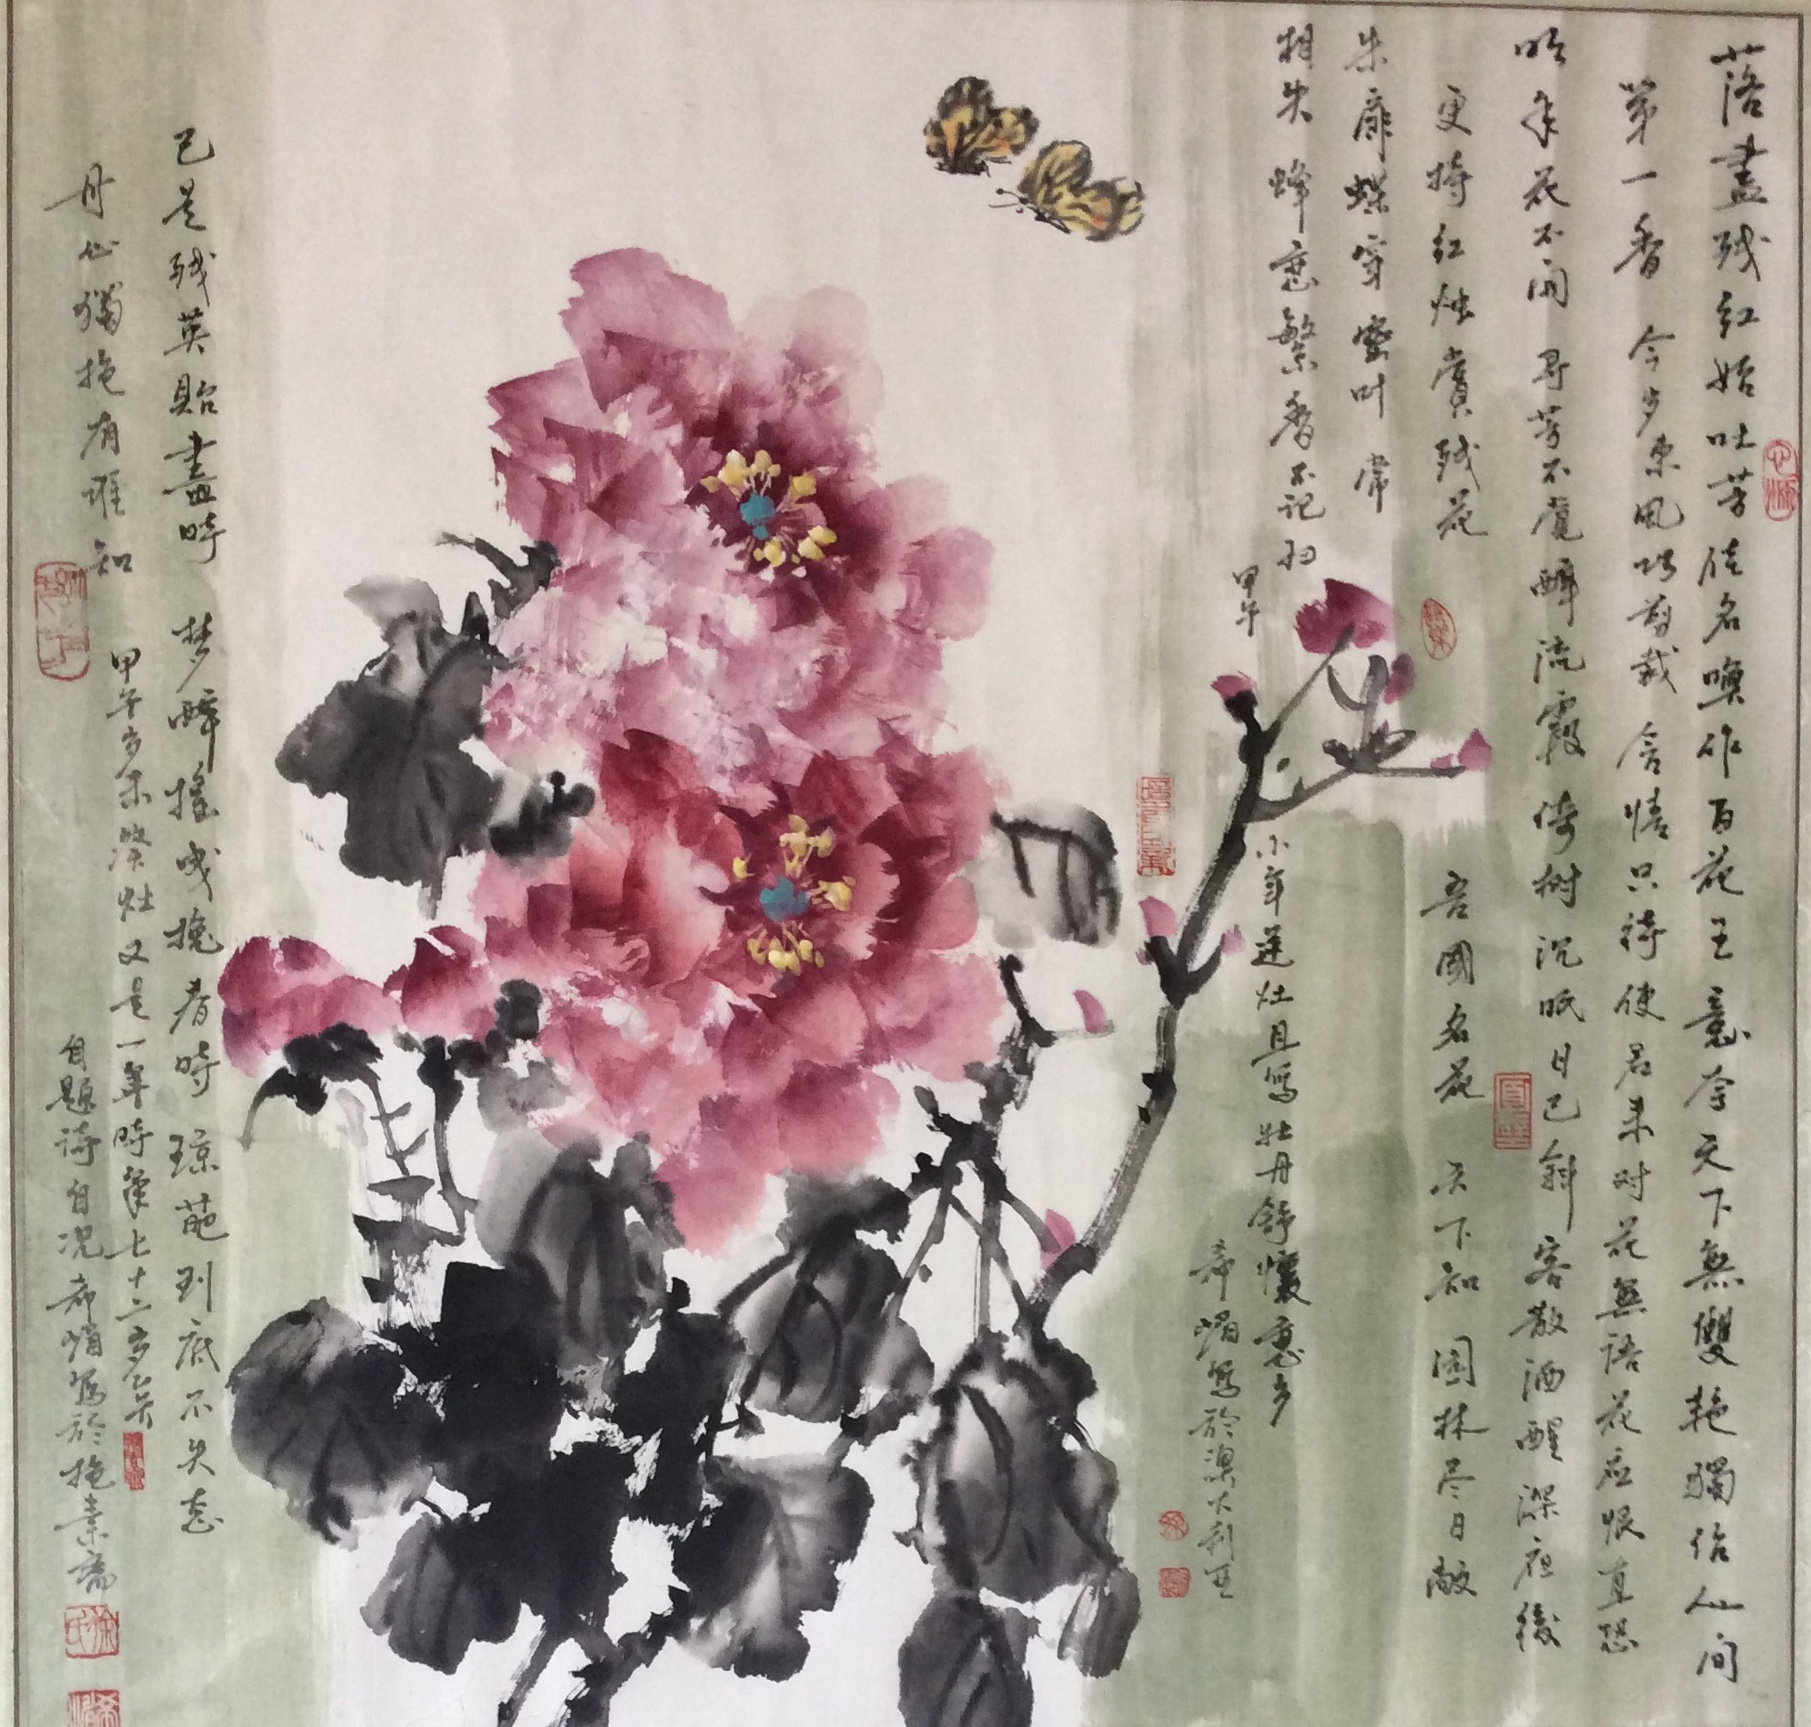 落盡残红始吐芳佳名喚作百花王竟夸天下無雙艳獨佔人间
第一香 今岁東風巧剪裁 含情只待使君来对花無語花应恨直恐
明年花不開 寻芳不觉醉流霞 倚树沉眠日已斜 客散酒醒深夜後
更持红烛赏残花 吾國名花 天下知 園林尽日敞
朱扉蝶穿密叶常
相失 蜂恋繁香不记归
甲午小年送灶且写牡丹舒懷
希嵋写於澳大利亚
已是残英殆盡時 梦醉摇曳挽春時 琼葩到底不失志
丹心獨抱有谁知
甲午岁末祭灶又是一年時年七十二岁矣
自题诗自况希嵋写於抱素斋